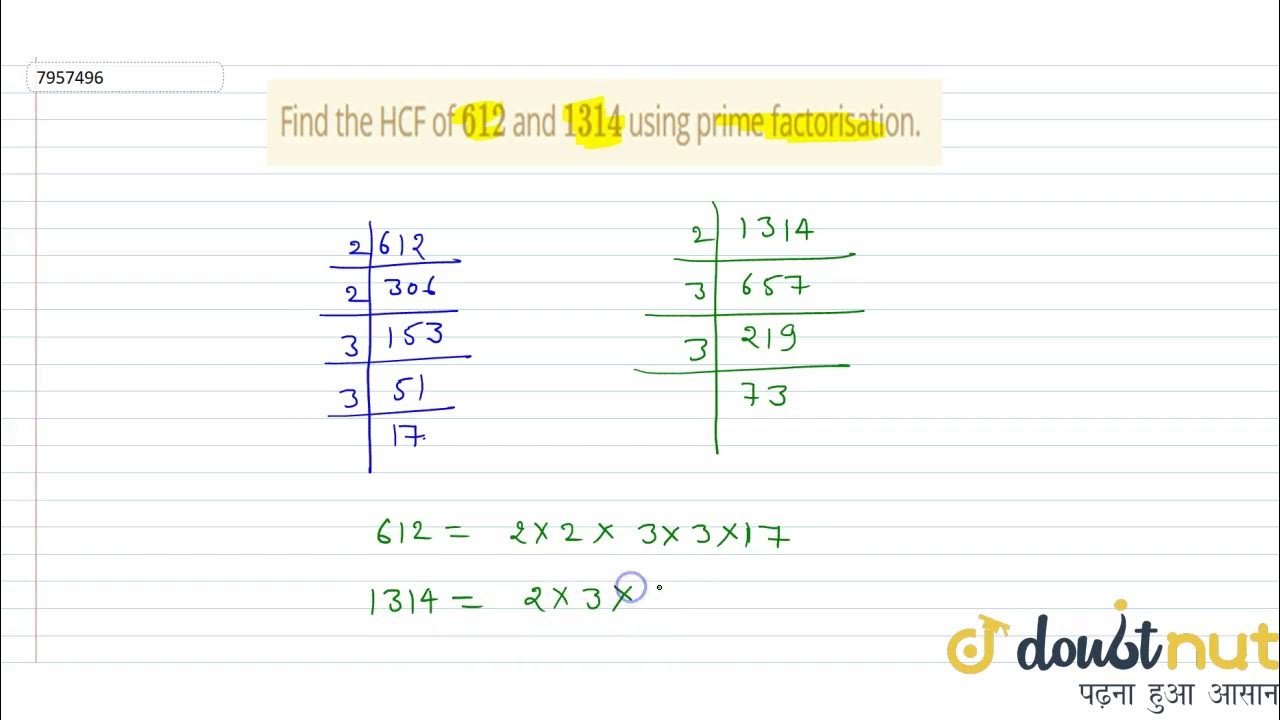 7957496
Find the HCF of 612 and 1314 using prime factorisation.
2 612
2 306
3 153
3 51
17
2 1314
3 657
3 219
73
612 = 2 × 2 × 3 × 3 × 17
1314 = 2 × 3 ×
doubtnut
पढ़ना हुआ आसान